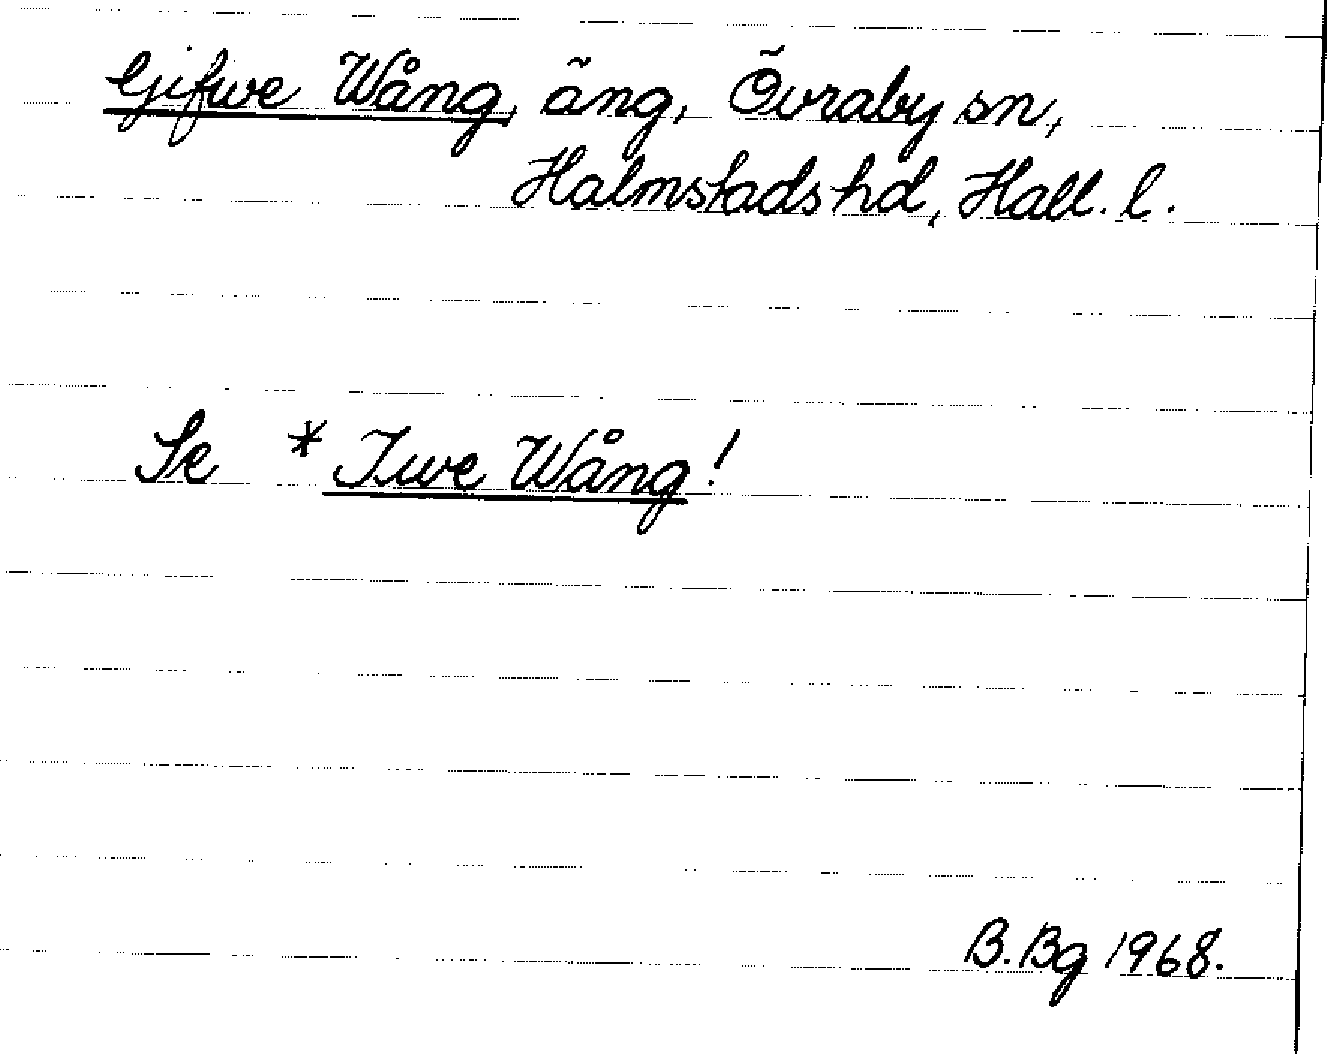 Gifwe Wång, äng, Övraby sn,
Halmstads hd, Hall. l.
Se * Iwe Wång!
B. Bg 1968.